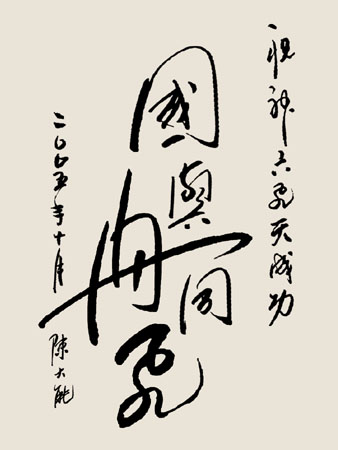 祝神六飛天成功
國與舟同飛
二〇〇五年十月
陳大